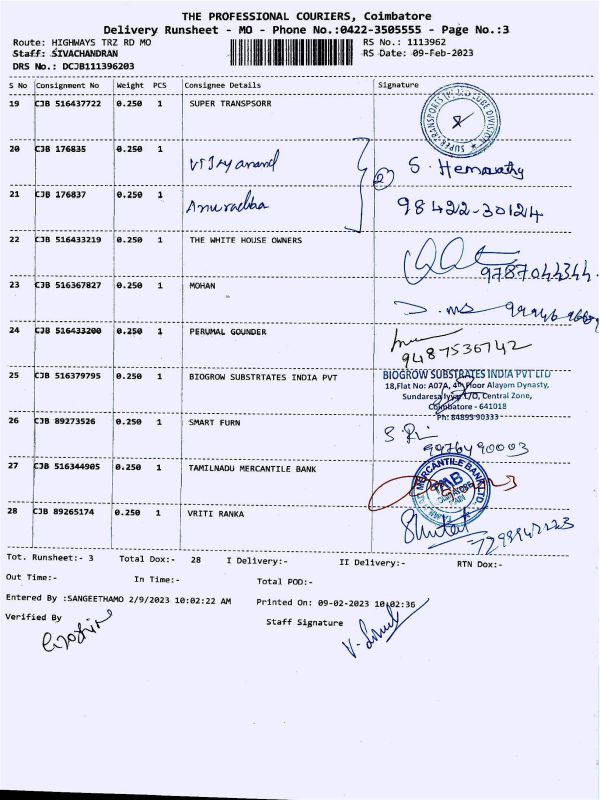 THE PROFESSIONAL COURIERS, Coimbatore
Delivery Runsheet - MO - Phone No.:0422-3505555 - Page No.:3
Route: HIGHWAYS TRZ RD MO
Staff: SIVACHANDRAN
DRS No.: DCJB111396203
RS No.: 1113962
RS Date: 09-Feb-2023
S No Consignment No Weight PCS Consignee Details Signature
19 CJB 516437722 0.250 1 SUPER TRANSPSORR
20 CJB 176835 0.250 1 Vijayanand S. Hemavathy
21 CJB 176837 0.250 1 Anuradha 98422-30124
22 CJB 516433219 0.250 1 THE WHITE HOUSE OWNERS 9787044344
23 CJB 516367827 0.250 1 MOHAN
24 CJB 516433200 0.250 1 PERUMAL GOUNDER 9487536742
25 CJB 516379795 0.250 1 BIOGROW SUBSTRTATES INDIA PVT
BIOGROW SUBSTRATES INDIA PVT LTD
18,Flat No: A07A, 4th Floor Alayam Dynasty,
Sundaresa Iyyar L/O, Central Zone,
Coimbatore - 641018
Ph: 84895 90333
26 CJB 89273526 0.250 1 SMART FURN 9976490003
27 CJB 516344905 0.250 1 TAMILNADU MERCANTILE BANK
MERCANTILE BANK LTD
TMB
28 CJB 89265174 0.250 1 VRITI RANKA
Tot. Runsheet:- 3 Total Dox:- 28 I Delivery:- II Delivery:- RTN Dox:-
Out Time:- In Time:- Total POD:-
Entered By :SANGEETHAMO 2/9/2023 10:02:22 AM Printed On: 09-02-2023 10:02:36
Verified By Staff Signature